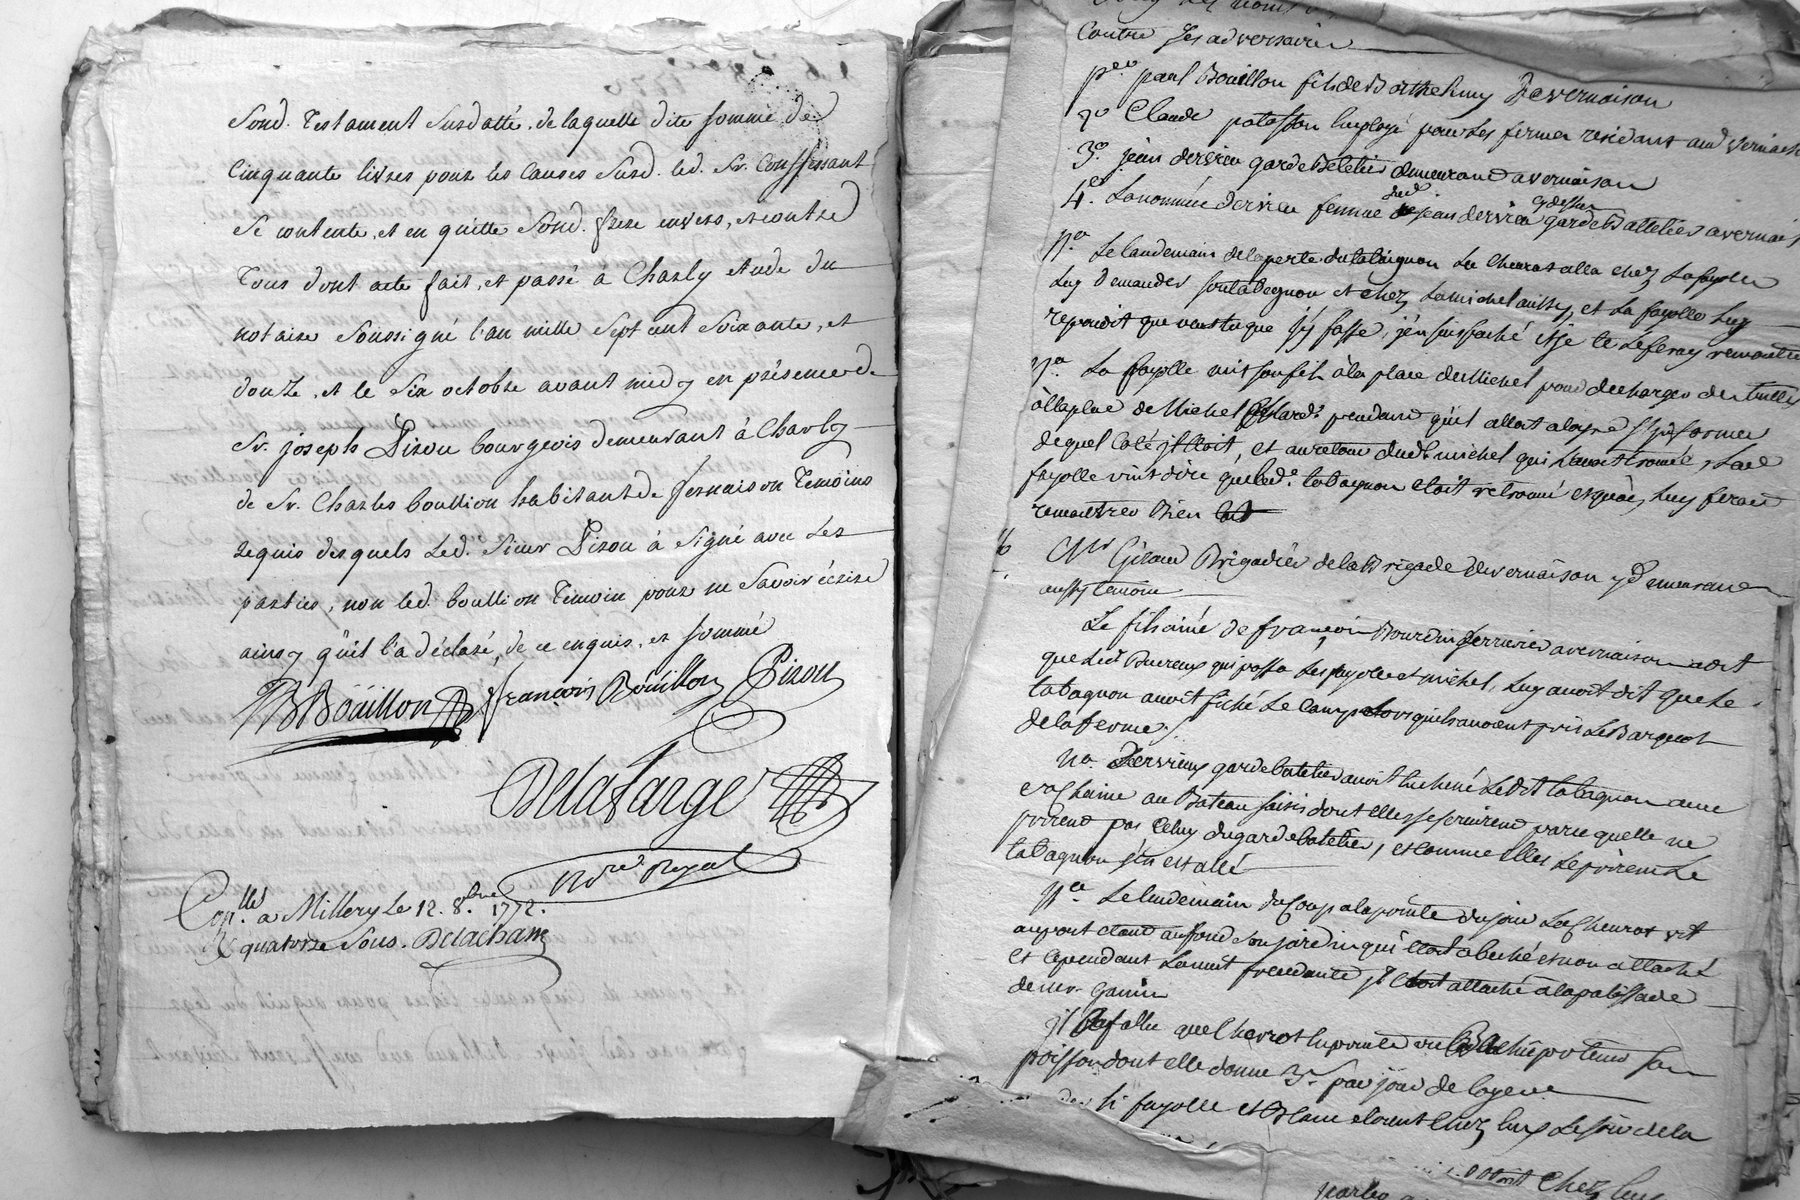 Sond. Testament susdatté, de laquelle dite somme de
Cinquante livres pour les Causes susd. led. Sr. Confessant
Se contente, et en quitte Sond. frere envers, et contre
Tous dont acte fait, et passé à Charly etude du
notaire Soussigné l'an mille Sept cent Soixante, et
douze, et le Six octobre avant midy en présence de
Sr. joseph Pizou bourgeois demeurant à Charly
de Sr. Charles boullion habitant de Vernaison Temoins
requis desquels led. Sieur Pizou à Signé avec Les
parties, non led. boullion Temoin pour ne Savoir écrire
ainsy qu'il l'a déclaré, de ce enquis, et sommé
Boüillon françois Boüillon Pizou
Delafarge
Nore Royal
Conllé a Millery Le 12. 8bre 1772.
R quatorze Sous. Delacham
Contre Ses adversaires
pre. paul Bouillon fils de Barthelemy de vernaison
2o Claude patasson Employé pour les fermes residant aud vernaison
3o. jean dervieu garde Batelier demeurant a vernaison
4e. La nommée dervieu femme dud jean dervieu cy dessus garde Battelier a vernaison
Na. Le landemain de la perte du tabagnon Le Cheurot alla chez La fayolle
Luy demander son tabagnon et chez La michel aussy, et La fayolle Luy
repondit que veux tu que j'y fasse, j'en suis faché et je te Le feray remettre
Na. La fayolle mit son fils à la place de Michel pour decharger des tuilles
à la place de Michel pendant qu'il alloit s'informer
de quel Coté il Etoit, et au retour dudt michel qui L'avoit trouvé, Lad
fayolle vint dire que led. tabagnon etoit retrouvé et qu'on Luy feroit
remettre Bien
Mr Giraud Brigadier de la Brigade de vernaison y demeurant
aussy temoin
Le fils ainé de françois Bourdin Serrurier a vernaison a dit
que Led Buereux qui passa Les fayolle et michel, Luy avoit dit que Le
tabagnon avoit fiché Le Camp Lorsquils avoient pris Le Barquot
de la ferme
Na Dervieux garde batelier avoit Enchené Ledit tabagnon avec
une Chaine au Bateau saisi dont elles se servirent parce quelle ne
prirent pas Celuy du garde batelier, et comme Elles Le prirent Le
tabagnon s'en est allé
Na. Le landemain du Coup a la pointe du jour Le Cheurot vit
au port etant au fond son jardin qu'il etoit attaché
Et Cependant La nuit precedante il Etoit attaché a la palissade
de mr. Ganin
poisson dont elle donne 3s. par jour de loyer
fayolle et etoient Chez luy Le soir de la
Chez luy